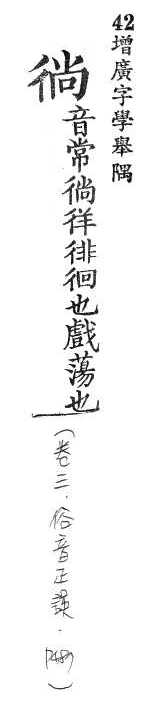 42增廣字學舉隅
徜音常徜徉徘徊也戲蕩也
(卷三.俗音正誤.